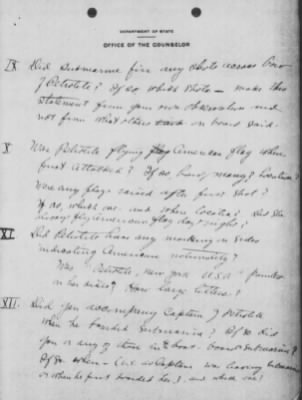 DEPARTMENT OF STATE
OFFICE OF THE COUNSELOR
IX Did Submarine fire any shots across bow
of Petrolite? If so which shots — make this
statement from your own observation and
not from what others on board said.
X Was Petrolite flying American flag when
first attacked? If so how many? Location?
Were any flags raised after first shot?
If so, which one and where located? Did she
always fly American flag day & night?
XI. Did Petrolite have any marking on sides
indicating American nationality?
Was "Petrolite, New York U.S.A" painted
on her sides? How large letters?
XII. Did you accompany Captain of Petrolite
when he boarded Submarine? If so did
you or any of those in the boat board Submarine?
If so when — as Captain was leaving Submarine
or when he first boarded her, and which one?